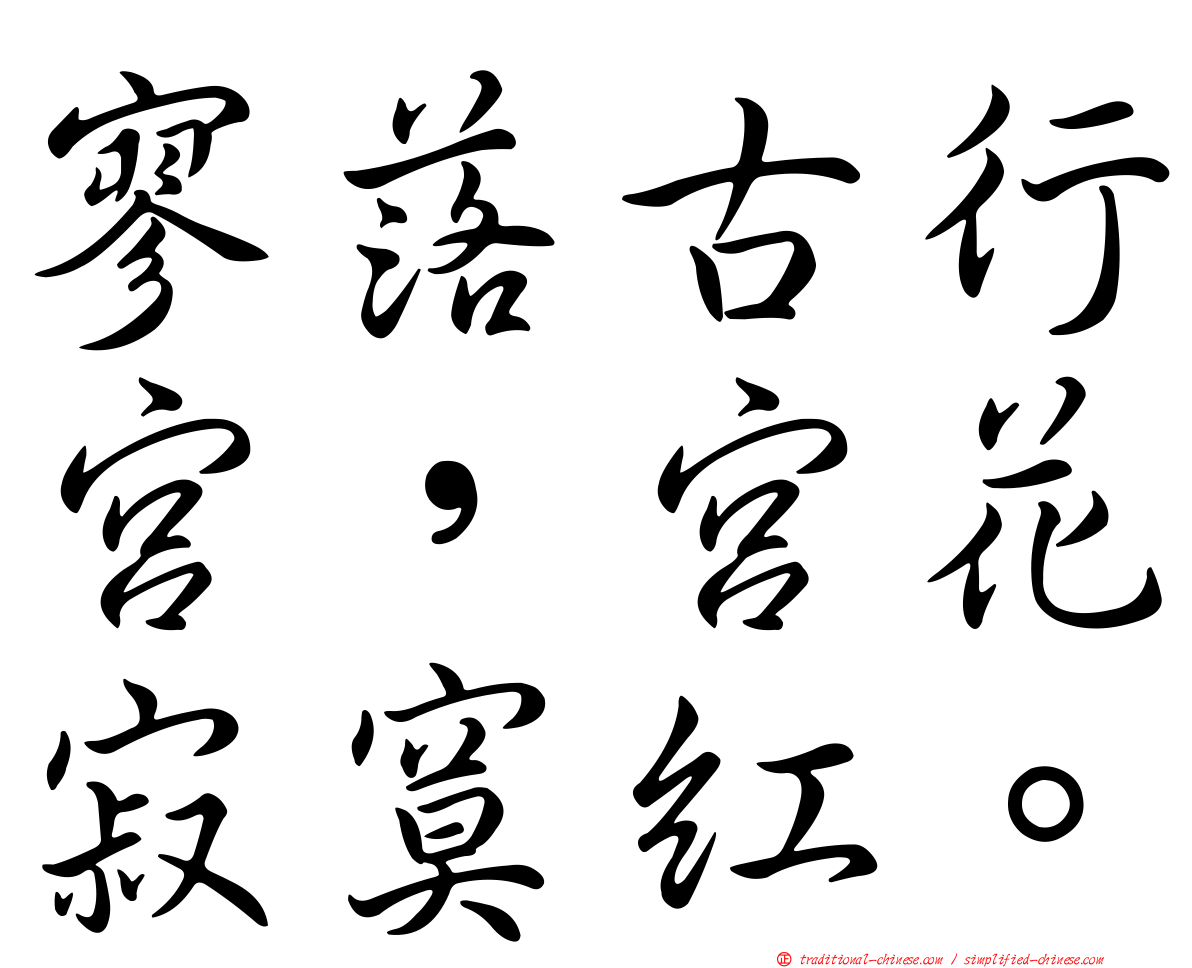 寥落古行
宮，宮花
寂寞紅。
正 traditional-chinese.com / simplified-chinese.com